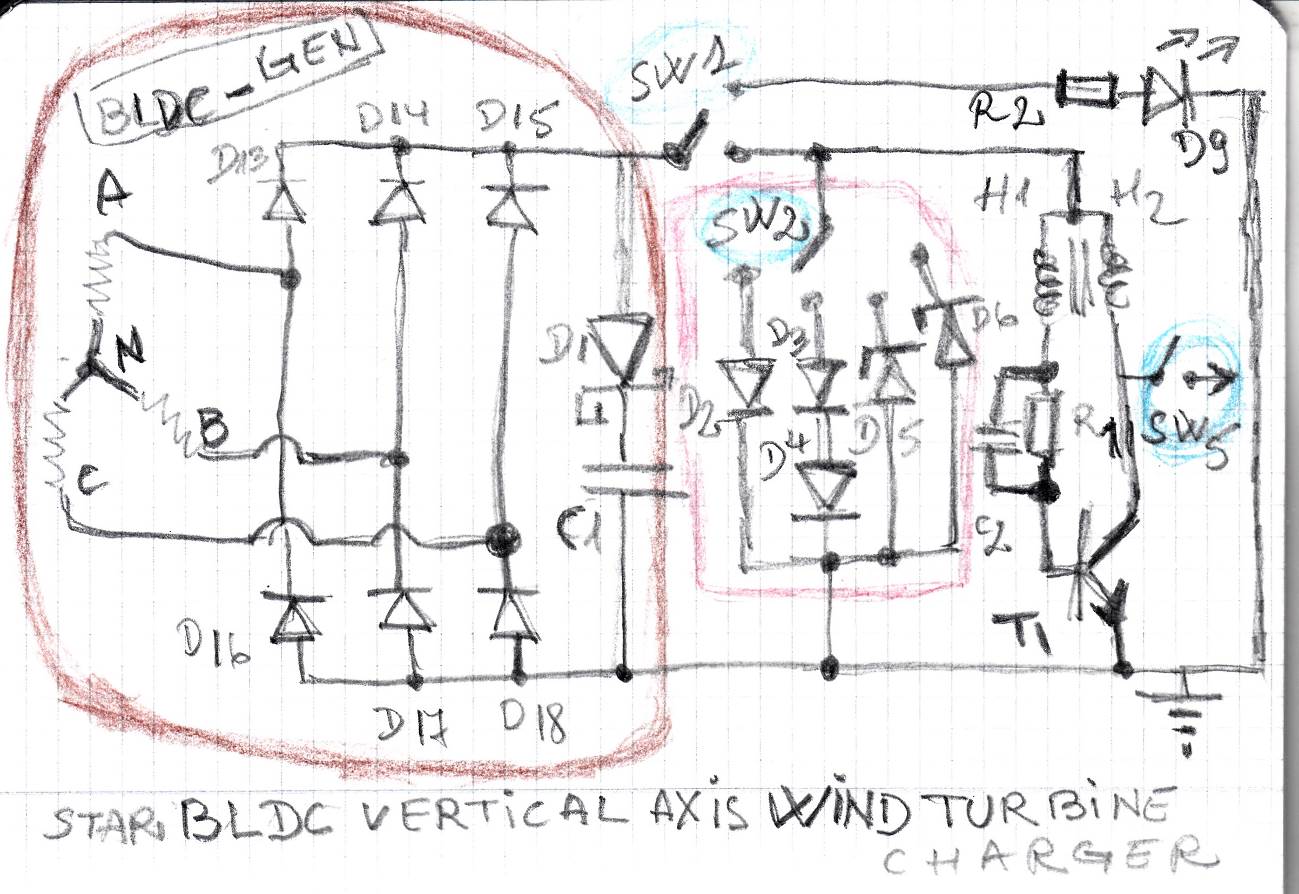 BLDC-GEN
SW1
D14
D15
D13
R2
D9
A
H1
H2
SW2
N
D1
D3
D6
D2
D5
R1
SW5
B
D4
C
C1
C2
D16
T1
D17
D18
STAR, BLDC VERTICAL AXIS WIND TURBINE
CHARGER